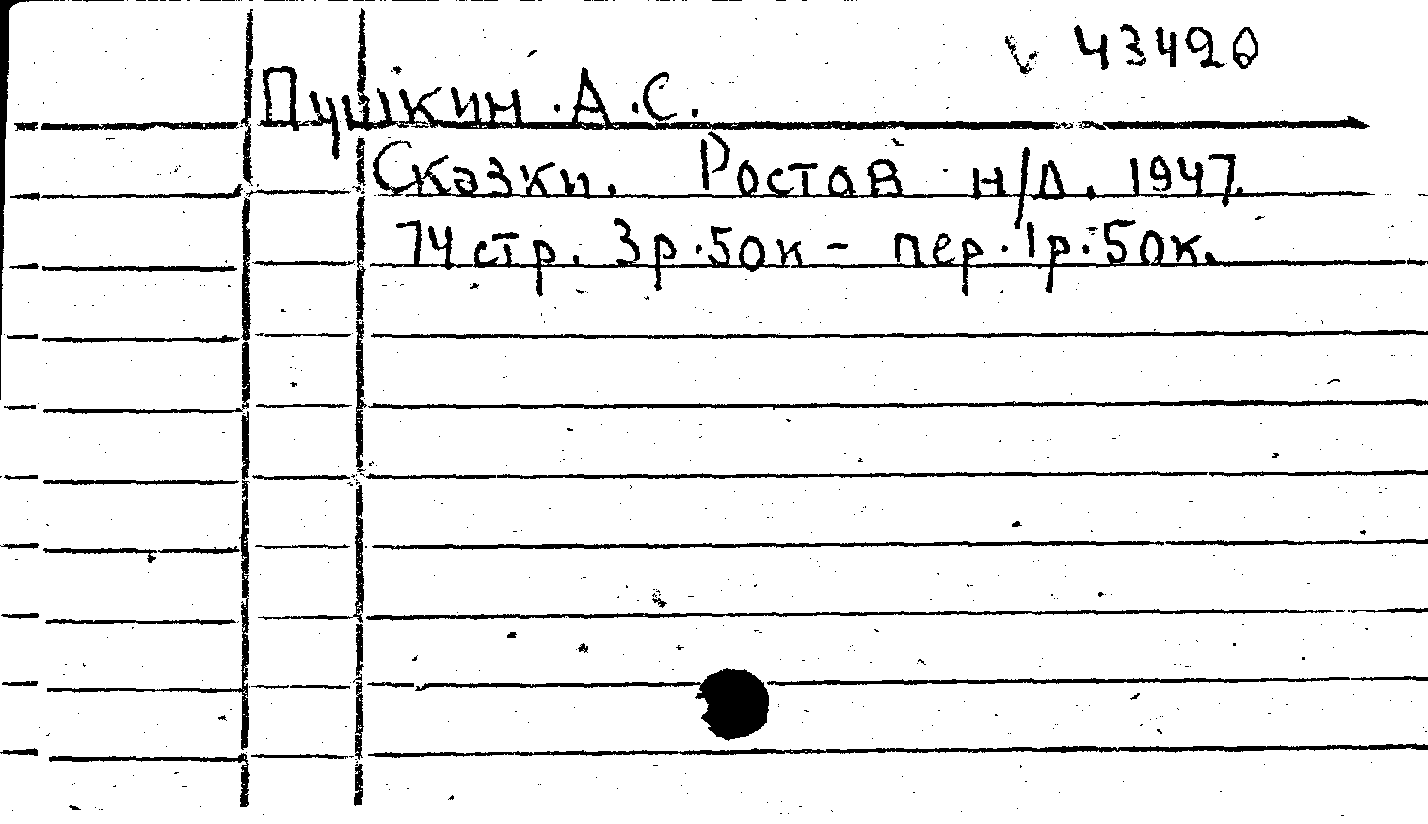 v 43420
Пушкин. А.С.
Сказки. Ростов н/Д. 1947.
74 стр. 3р.50к - пер.1р.50к.